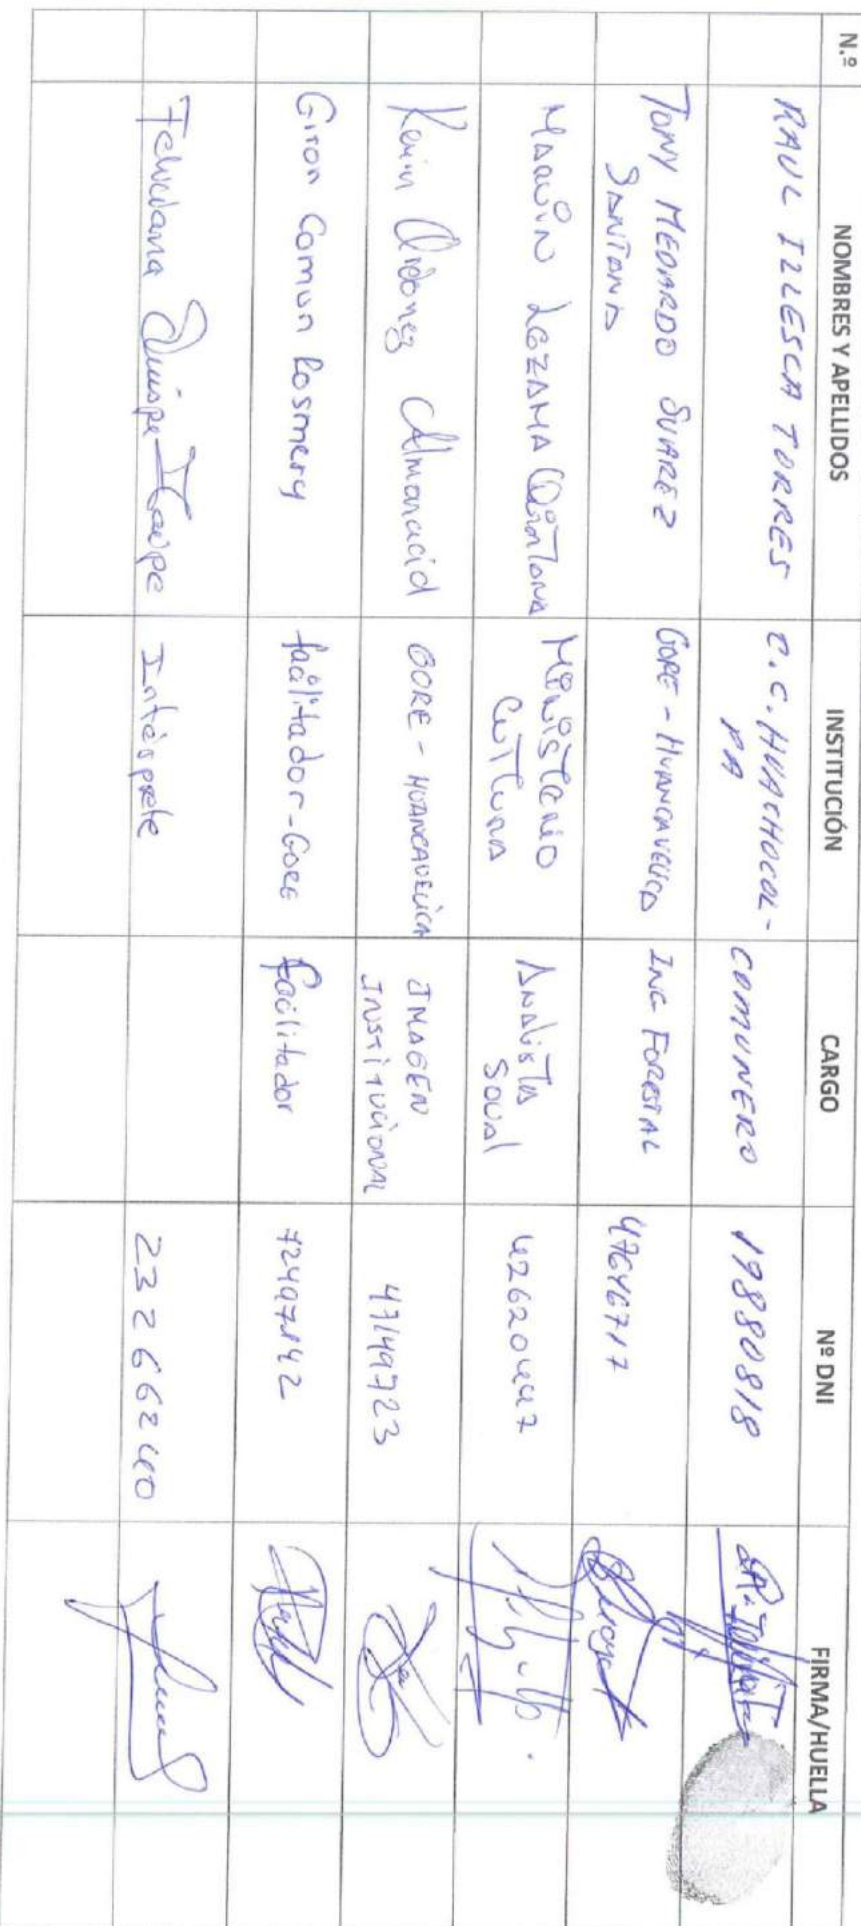 N.º NOMBRES Y APELLIDOS INSTITUCIÓN CARGO Nº DNI FIRMA/HUELLA
RAUL ILLESCA TORRES C.C. HUACHOCOL-
PA COMUNERO 19880818
TONY MEDARDO SUAREZ
SANTANA GORE - HUANCAVELICA ING FORESTAL 47646717
MARVIN LEZAMA QUINTANA MINISTERIO
CULTURA ANALISTA
SOCIAL 42620447
Kevin Ordoñez Almonacid GORE - HUANCAVELICA IMAGEN
INSTITUCIONAL 47149723
Giron Comun Rosmery facilitador-Gore facilitador 72497142
Feliciana Quispe Taipe Intérprete 23266240